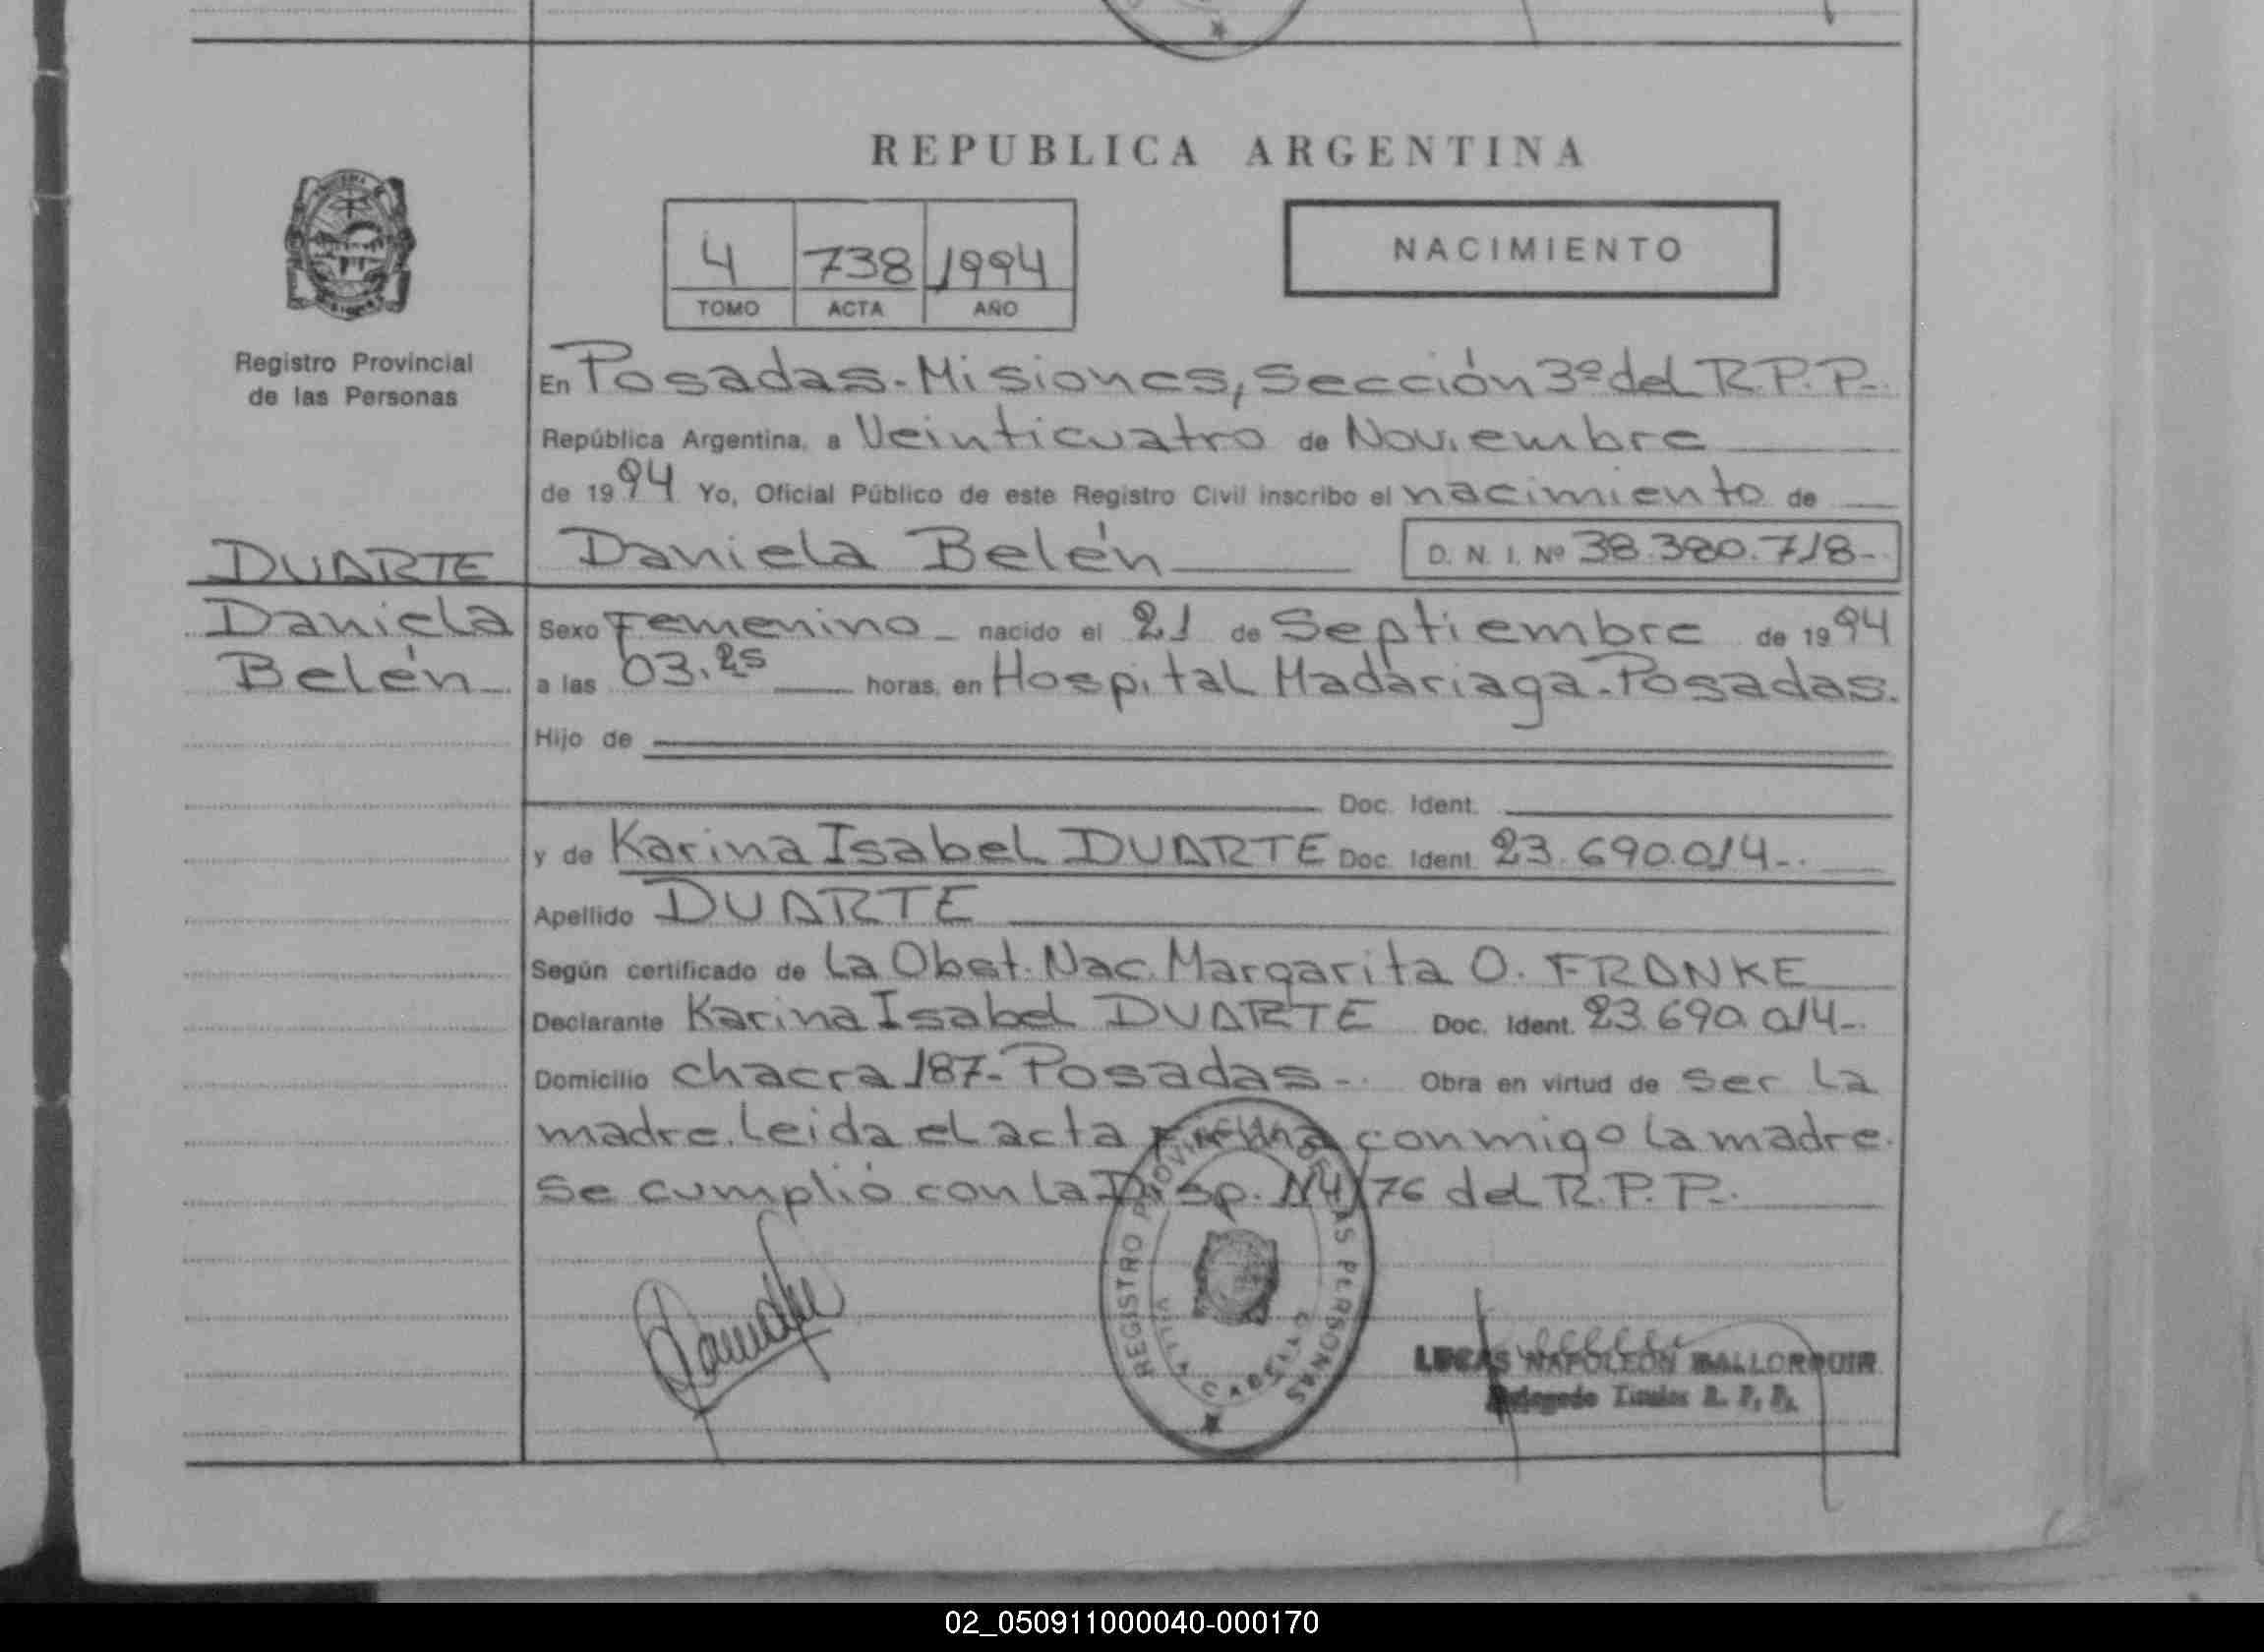 REPUBLICA ARGENTINA
4 738 1994
TOMO ACTA AÑO
NACIMIENTO
Registro Provincial
de las Personas
En Posadas-Misiones, Sección 3º del R.P.P.
República Argentina, a Veinticuatro de Noviembre
de 1994 Yo, Oficial Público de este Registro Civil inscribo el nacimiento de
Daniela Belén D. N. I. Nº 38.380.718-
DUARTE
Daniela
Belén
Sexo Femenino nacido el 21 de Septiembre de 1994
a las 03.25 horas, en Hospital Madariaga-Posadas.
Hijo de
Doc. Ident.
y de Karina Isabel DUARTE Doc. Ident. 23.690.014-.
Apellido DUARTE
Según certificado de la Obst. Nac. Margarita O. FRANKE
Declarante Karina Isabel DUARTE Doc. Ident. 23.690.014-.
Domicilio chacra 187-Posadas-. Obra en virtud de ser la
madre. leida el acta firma conmigo la madre.
Se cumplió con la Disp. Nº 4/76 del R.P.P-.
REGISTRO PROVINCIAL DE LAS PERSONAS
VILLA CABELLO
LUCAS NAPOLEON BALLORQUIN
Delegado Titular R. P. P.
02_050911000040-000170